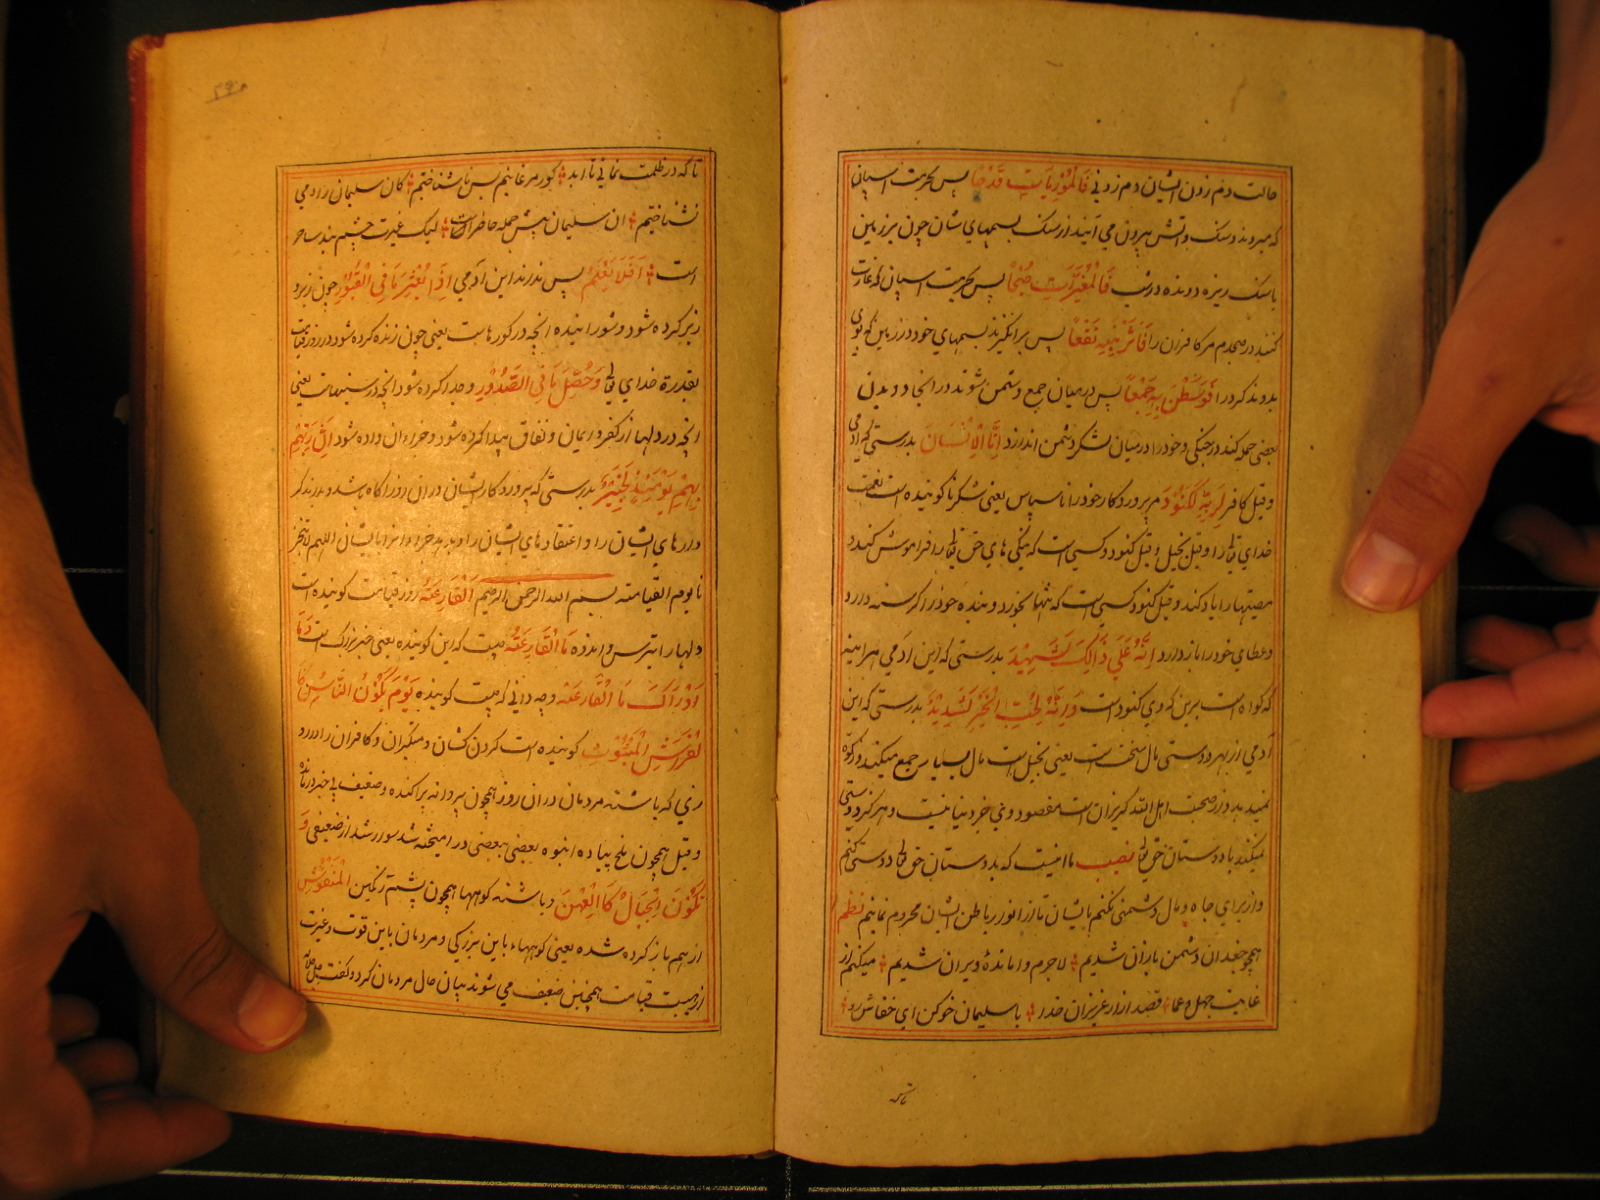 حالت دم زدن ایشان دم زدنی فَالْمُوْرِیَاتِ قَدْحًا پس بحرمت اسپانی
که میروند و سنک و اتش بیرون می آنند از سنک بسمهای شان چون بر زمین
با سنک ریزه دونده درشت فَالْمُغِیْرَاتِ صُبْحًا پس بحرمت اسپان که غارت
کنند در صبحدم مر کافران را فَاَثَرْنَ بِهِ نَقْعًا پس برانکیزند بسمهای خود در زمین که بوی
بدوند کرد را فَوَسَطْنَ بِهِ جَمْعًا پس در میان جمع دشمن شوند در انجا دویدن
یعنی حمله کند در جنکی و خود را در میان لشکر دشمن اندازد اِنَّ الْاِنْسَانَ بدرستی که آدمی
و قیل کافر لِرَبِّهٖ لَکَنُوْدٌ مر پروردکار خود را ناسپاس یعنی شکر نا کوینده است نعمت
خدای تعالی را و قیل بخیل و قیل کنود کسی است که نیکی های حق تعالی را فراموش کند و
مصیبتها را یاد کند و قیل کنود کسی است که تنها بخورد و بنده خود را کرسنه دارد
و عطای خود را باز دارد اِنَّهٗ عَلٰی ذَالِکَ لَشَهِیْدٌ بدرستی که این ادمی هر اینه
که کواه است برین که وی کنود است وَ اِنَّهٗ لِحُبِّ الْخَیْرِ لَشَدِیْدٌ بدرستی که این
آدمی از بهر دوستی مال سخت است یعنی بخیل است مال بسیار جمع میکند و زکوة
نمیدهد و از صحبت اهل الله کریزان است مقصود وی خبر دنیا نیست و هر که دوستی
میکند با دوستان حق تعالی نصیب ما انیست که بدوستان حق تعالی دوستی کنم
و از برای جاه و مال دشمنی نکنم بایشان تا از انوار باطن ایشان محروم نمانیم نظم
همچو جغدان دشمن بازان شدیم لاجرم وا ماندهٔ ویران شدیم میکنم از
غایت جهل و عما قصد ازار عزیزان خدا با سلیمان خو کن ای خفاش رو
تا که
تا که در ظلمت نمانی تا ابد کور مرغانیم بس نا شناختیم کان سلیمان را دمی
نشناختیم ان سلیمان پیش جمله حاضر است لیک غیرت چشم بند ساحر
است اَفَلَا یَعْلَمُ پس نداند این ادمی اِذَا بُعْثِرَ مَا فِی الْقُبُوْرِ چون زیر و
زبر کرده شود و شورانیده انچه در کورهاست یعنی چون زنده کرده شود در روز قیامت
بقدرة خدای تعالی وَحُصِّلَ مَا فِی الصُّدُوْرِ و جدا کرده شود انچه در سینهاست یعنی
انچه در دلها از کفر و ایمان و نفاق پیدا کرده شود و جزاء ان داده شود اِنَّ رَبَّهُمْ
بِهِمْ یَوْمَئِذٍ لَّخَبِیْرٌ بدرستی که پروردکار ایشان در ان روز اکاه باشد و بداند کر
دارهای ایشان را و اعتقادهای ایشان را و بدهد جزاء مر ایشان اللهم لا تخز
نا یوم القیامة بسم الله الرحمن الرحیم اَلْقَارِعَةُ روز قیامت کوبنده است
دلها را بترس و اندوه مَا الْقَارِعَةُ چیست که این کوبنده یعنی خبر بزرک است وَمَا
اَدْرَاکَ مَا الْقَارِعَةُ و چه دانی که چیست کوبنده یَوْمَ یَکُوْنُ النَّاسُ کَا
لْفَرَاشِ الْمَبْثُوْثِ کوبنده است کردن کشان و متکبران و کافران را در رو
زی که باشند مردمان در ان روز همچون پروانه پراکنده و ضعیف بی خبر درمانده
و قیل همچون ملخ پیاده انبوه بعضی ببعضی در امیخته شد سور شد از ضعیفی وَ
تَکُوْنُ الْجِبَالُ کَا الْعِهْنِ و باشند کوهها همچون پشم رنکین الْمَنْفُوْشِ
از هم باز کرده شده یعنی کوهها باین بزرکی و مردمان باین قوت و غیرت
از هیبت قیامت همچنین ضعیف می شوند بیان حال مردمان کرد و کفت